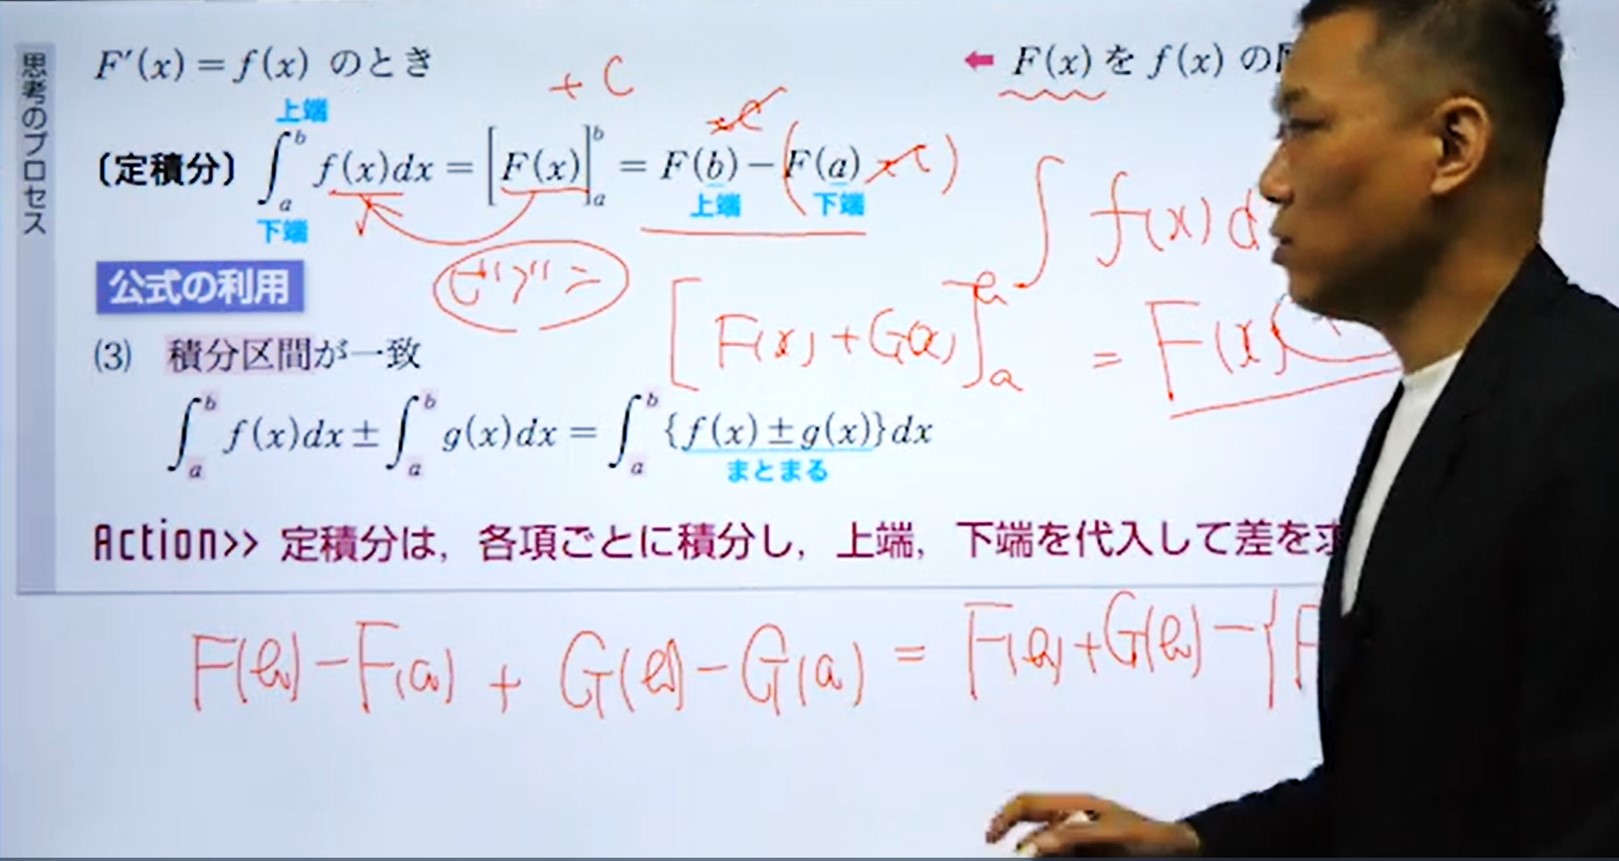 思考のプロセス
F′(x) = f(x) のとき
← F(x) を f(x) の
+ C
上端
〔定積分〕 ∫_a^b f(x)dx = [F(x)]_a^b = F(b) − (F(a) + C)
下端
上端 下端
+C
∫ f(x) d
ビブン
公式の利用
[F(x) + G(x)]_a^b
= F(x)
(3) 積分区間が一致
∫_a^b f(x)dx ± ∫_a^b g(x)dx = ∫_a^b {f(x) ± g(x)}dx
まとまる
Action>> 定積分は, 各項ごとに積分し, 上端, 下端を代入して差を求
F(b) − F(a) + G(b) − G(a) = F(b) + G(b) − {F